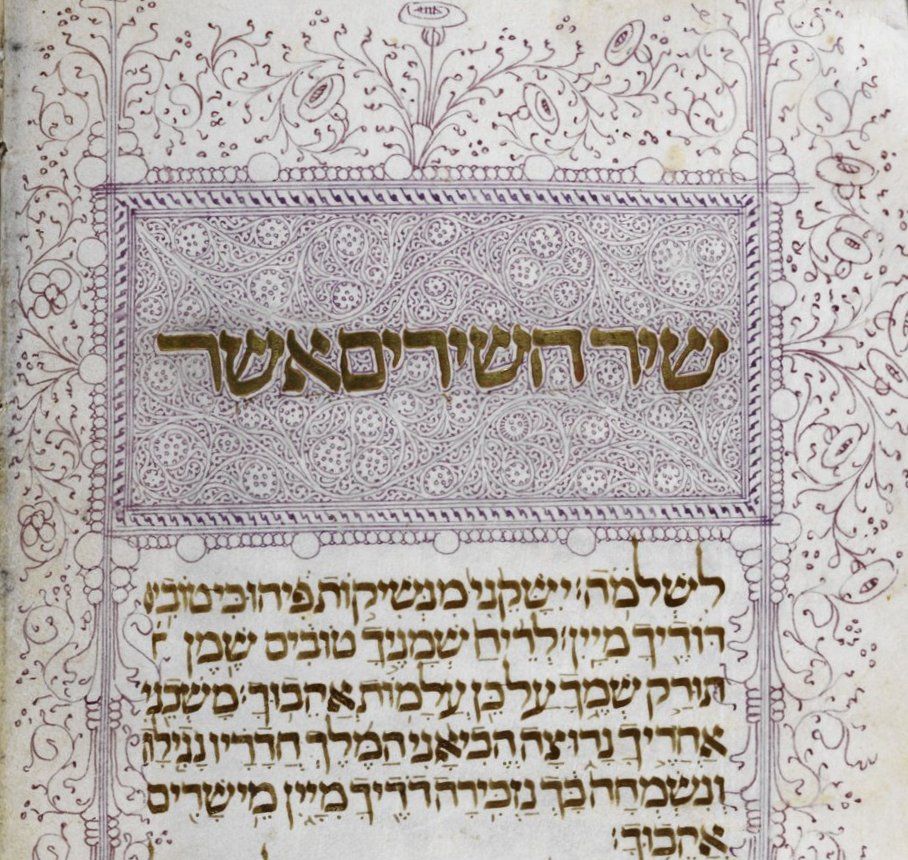 שיר השירים אשר
לִשְׁלֹמֹה: יִשָּׁקֵנִי מִנְּשִׁיקוֹת פִּיהוּ כִּי טוֹבִים
דּוֹדֶיךָ מִיָּיִן: לְרֵיחַ שְׁמָנֶיךָ טוֹבִים שֶׁמֶן
תּוּרַק שְׁמֶךָ עַל כֵּן עֲלָמוֹת אֲהֵבוּךָ: מָשְׁכֵנִי
אַחֲרֶיךָ נָּרוּצָה הֱבִיאַנִי הַמֶּלֶךְ חֲדָרָיו נָגִילָה
וְנִשְׂמְחָה בָּךְ נַזְכִּירָה דֹדֶיךָ מִיַּיִן מֵישָׁרִים
אֲהֵבוּךָ: